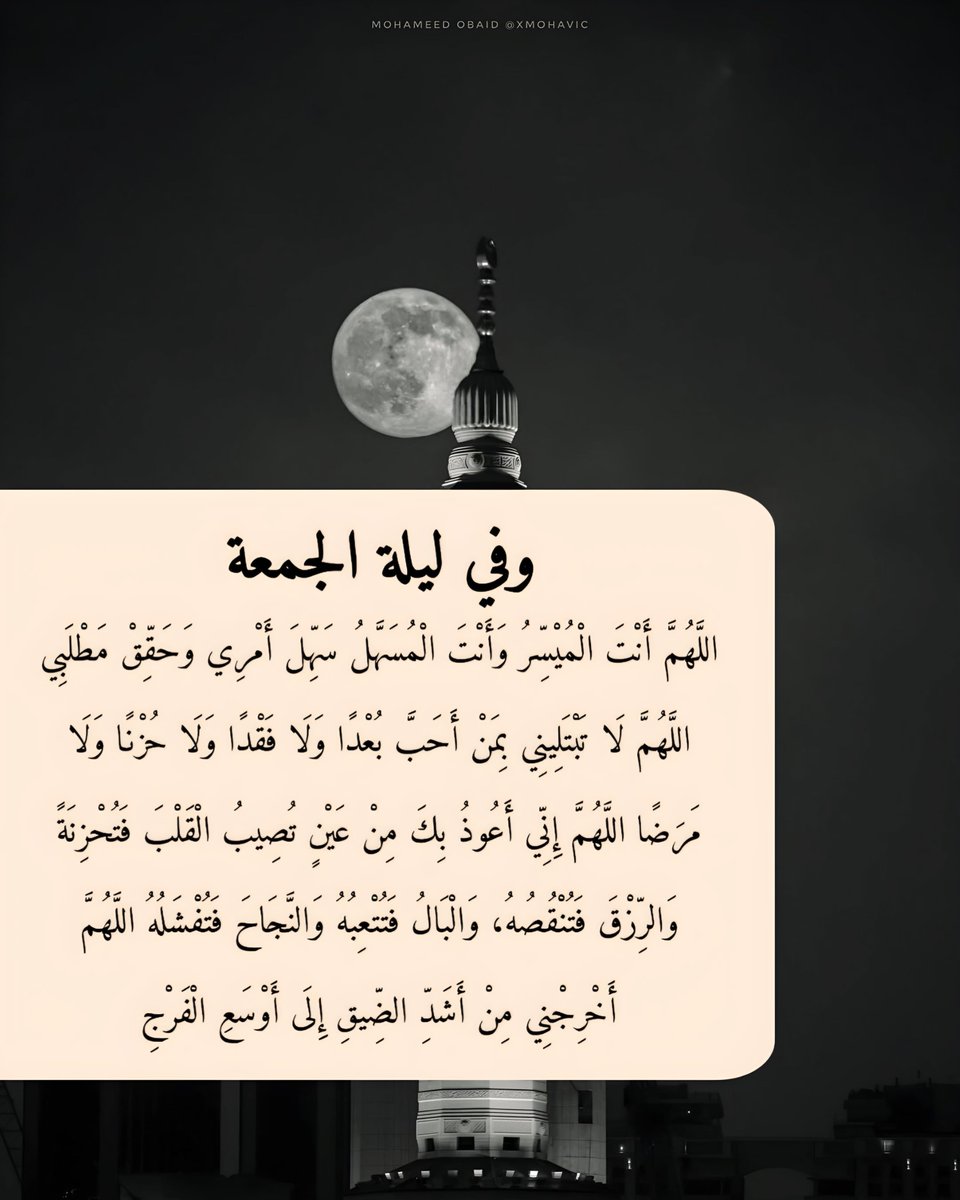 MOHAMEED OBAID @XMOHAVIC
وفي ليلة الجمعة
اللَّهُمَّ أَنْتَ الْمُيْسِّرُ وَأَنْتَ الْمُسَهَّلُ سَهِّلَ أَمْرِي وَحَقِّقْ مَطْلَبِي
اللَّهُمَّ لَا تَبْتَلِينِي بِمَنْ أَحَبَّ بُعْدًا وَلَا فَقْدًا وَلَا حُزْنًا وَلَا
مَرَضًا اللَّهُمَّ إِنِّي أَعُوذُ بِكَ مِنْ عَيْنٍ تُصِيبُ الْقَلْبَ فَتُحْزِنَةً
وَالرِّزْقَ فَتُنْقُصُهُ، وَالْبَالُ فَتُتْعِبُهُ وَالنَّجَاحَ فَتُفْشَلُهُ اللَّهُمَّ
أَخْرِجْنِي مِنْ أَشَدِّ الضِّيقِ إِلَى أَوْسَعِ الْفَرْجِ